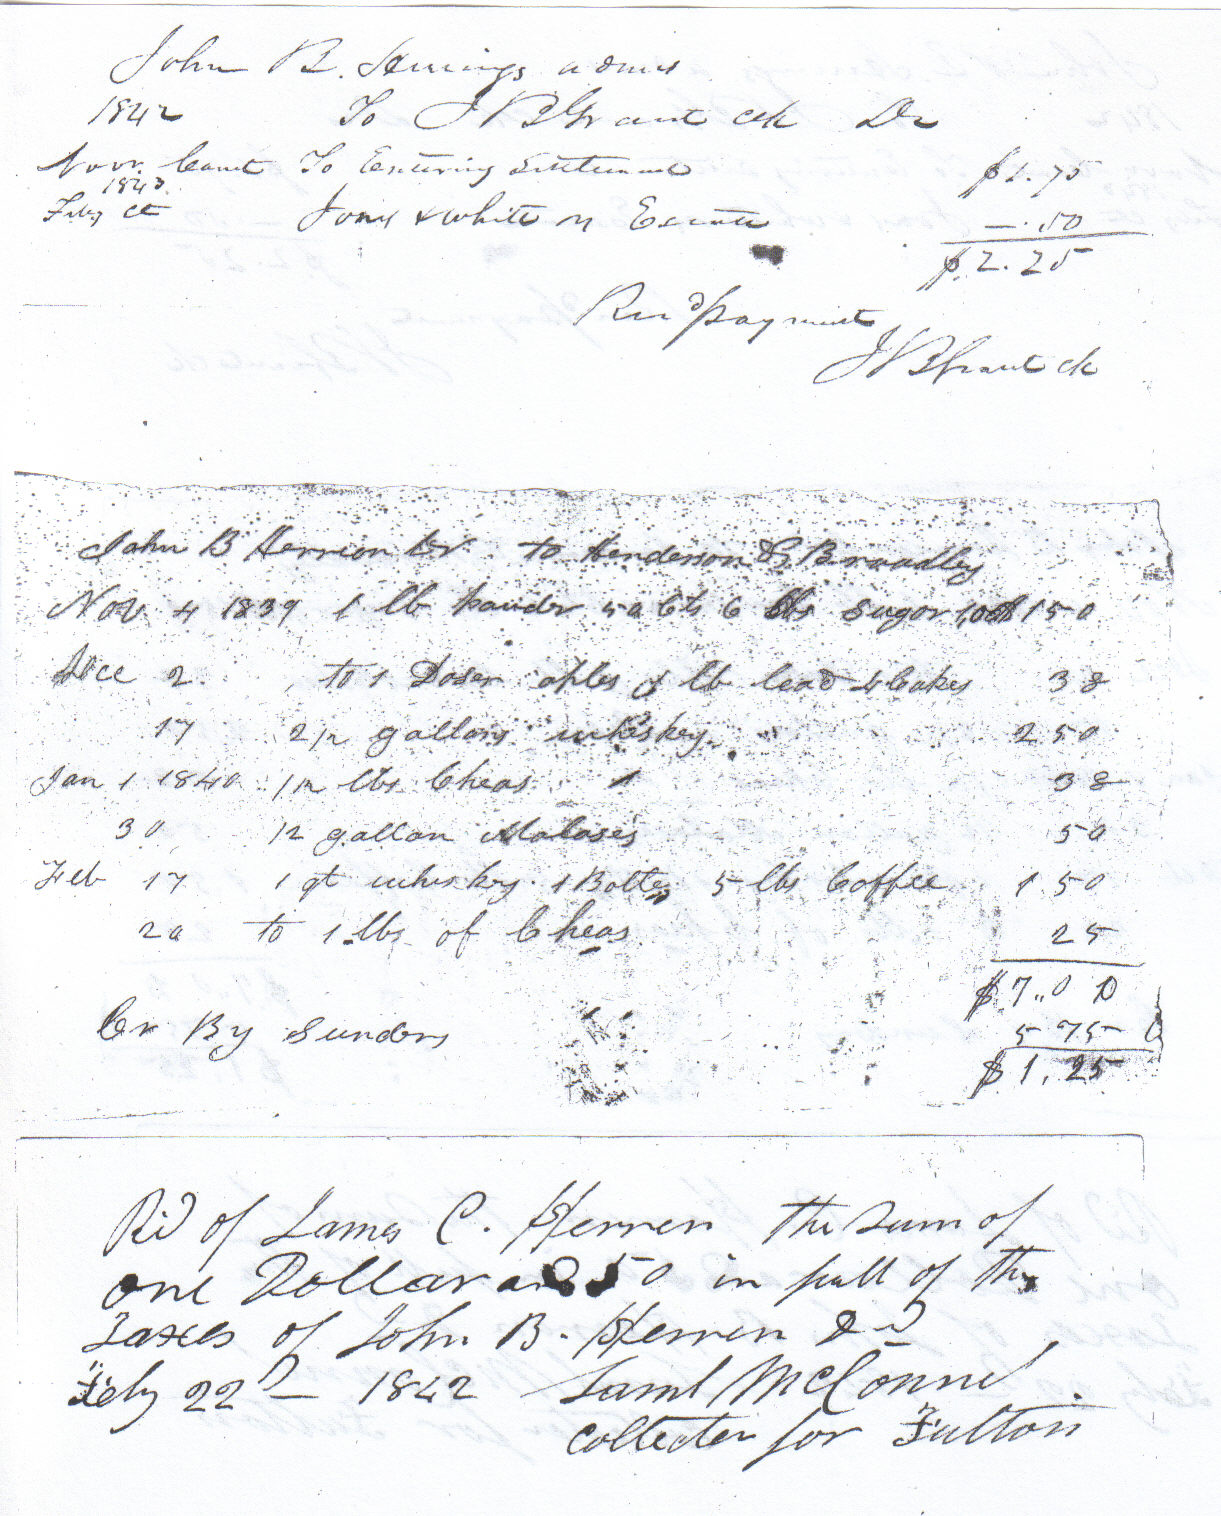 John B. Herrings adms
1842 To J B Grant clk Dr
Novr. Court To Entering Settlement $1.75
1843
Feby Ct Jones & White vs Excute —.50
$2.25
Recd payment
J B Grant clk
John B Herrion Dr. to Henderson & Braadley
Nov 4 1839 1 lb pauder 50 cts 6 lbs Sugor 1,00 1 50
Dece 2. to 1 Dosen aples & lb lead 4 Cakes 38
17 2 1/2 gallons whiskey 2 50
Jan 1 1840 1/2 lbs Cheas 38
30 1/2 gallon Malases 50
Feb 17 1 qt whiskey 1 Botte 5 lbs Coffee 1 50
20 to 1 lbs of Cheas 25
$7.00
Cr By Sunders 5 75
$1.25
Rd of James C. Herren the Sum of
one Dollar and 50 in full of the
Taxes of John B. Herren Dd
Feby 22d 1842 Saml McConnel
collecter for Fulton